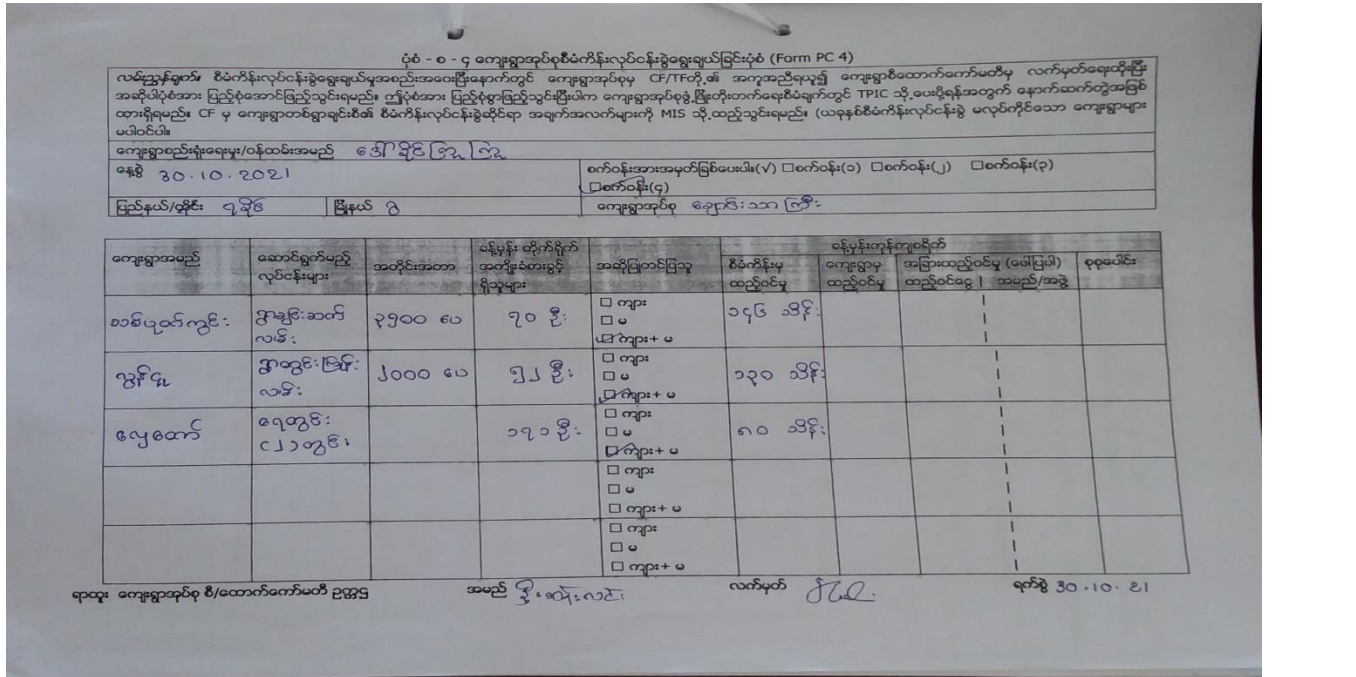 ပုံစံ - စ - ၄ ကျေးရွာအုပ်စုစီမံကိန်းလုပ်ငန်းခွဲရွေးချယ်ခြင်းပုံစံ (Form PC 4)
လမ်းညွှန်ချက်။ စီမံကိန်းလုပ်ငန်းခွဲရွေးချယ်မှုအစည်းအဝေးပြီးနောက်တွင် ကျေးရွာအုပ်စုမှ CF/TFတို့၏ အကူအညီရယူ၍ ကျေးရွာစီထောက်ကော်မတီမှ လက်မှတ်ရေးထိုးပြီး
အဆိုပါပုံစံအား ပြည့်စုံအောင်ဖြည့်သွင်းရမည်။ ဤပုံစံအား ပြည့်စုံစွာဖြည့်သွင်းပြီးပါက ကျေးရွာအုပ်စုဖွံ့ဖြိုးတိုးတက်ရေးစီမံချက်တွင် TPIC သို့ပေးပို့ရန်အတွက် နောက်ဆက်တွဲအဖြစ်
ထားရှိရမည်။ CF မှ ကျေးရွာတစ်ရွာချင်းစီ၏ စီမံကိန်းလုပ်ငန်းခွဲဆိုင်ရာ အချက်အလက်များကို MIS သို့ထည့်သွင်းရမည်။ (ယခုနှစ်စီမံကိန်းလုပ်ငန်းခွဲ မလုပ်ကိုင်သော ကျေးရွာများ
မပါဝင်ပါ။
ကျေးရွာစည်းရုံးရေးမှူး/ဝန်ထမ်းအမည် ဒေါ်ခိုင်ကြူကြူ
နေ့စွဲ 30.10.2021 စက်ဝန်းအားအမှတ်ခြစ်ပေးပါ။(√) □စက်ဝန်း(၁) □စက်ဝန်း(၂) □စက်ဝန်း(၃)
□စက်ဝန်း(၄)
ပြည်နယ်/တိုင်း ရခိုင် မြို့နယ် ဂွ ကျေးရွာအုပ်စု ချောင်းသာကြီး
ကျေးရွာအမည် ဆောင်ရွက်မည့် လုပ်ငန်းများ အတိုင်းအတာ ခန့်မှန်း တိုက်ရိုက် အကျိုးခံစားခွင့် ရှိသူများ အဆိုပြုတင်ပြသူ ခန့်မှန်းကုန်ကျစရိတ်
စီမံကိန်းမှ ထည့်ဝင်မှု ကျေးရွာမှ ထည့်ဝင်မှု အခြားထည့်ဝင်မှု (ဖေါ်ပြပါ) ထည့်ဝင်ငွေ အမည်/အဖွဲ့ စုစုပေါင်း
ရွာချင်းဆက် ၃၅၀၀ ပေ ၇၀ ဦး □ ကျား ၁၄၆ သိန်း
လမ်း □ မ
□ ကျား+ မ
ညွန်ဦး ရွာတွင်းခြင်း ၂၀၀၀ ပေ ၅၂ ဦး □ ကျား ၁၃၀ သိန်း
လမ်း □ မ
□ ကျား+ မ
လှေတော် ရေတွင်း ၁၇၁ ဦး □ ကျား ၈၀ သိန်း
(၂)တွင်း □ မ
□ ကျား+ မ
□ ကျား
□ မ
□ ကျား+ မ
□ ကျား
□ မ
□ ကျား+ မ
ရာထူး ကျေးရွာအုပ်စု စီ/ထောက်ကော်မတီ ဥက္ကဋ္ဌ အမည် လက်မှတ် ရက်စွဲ 30.10.21